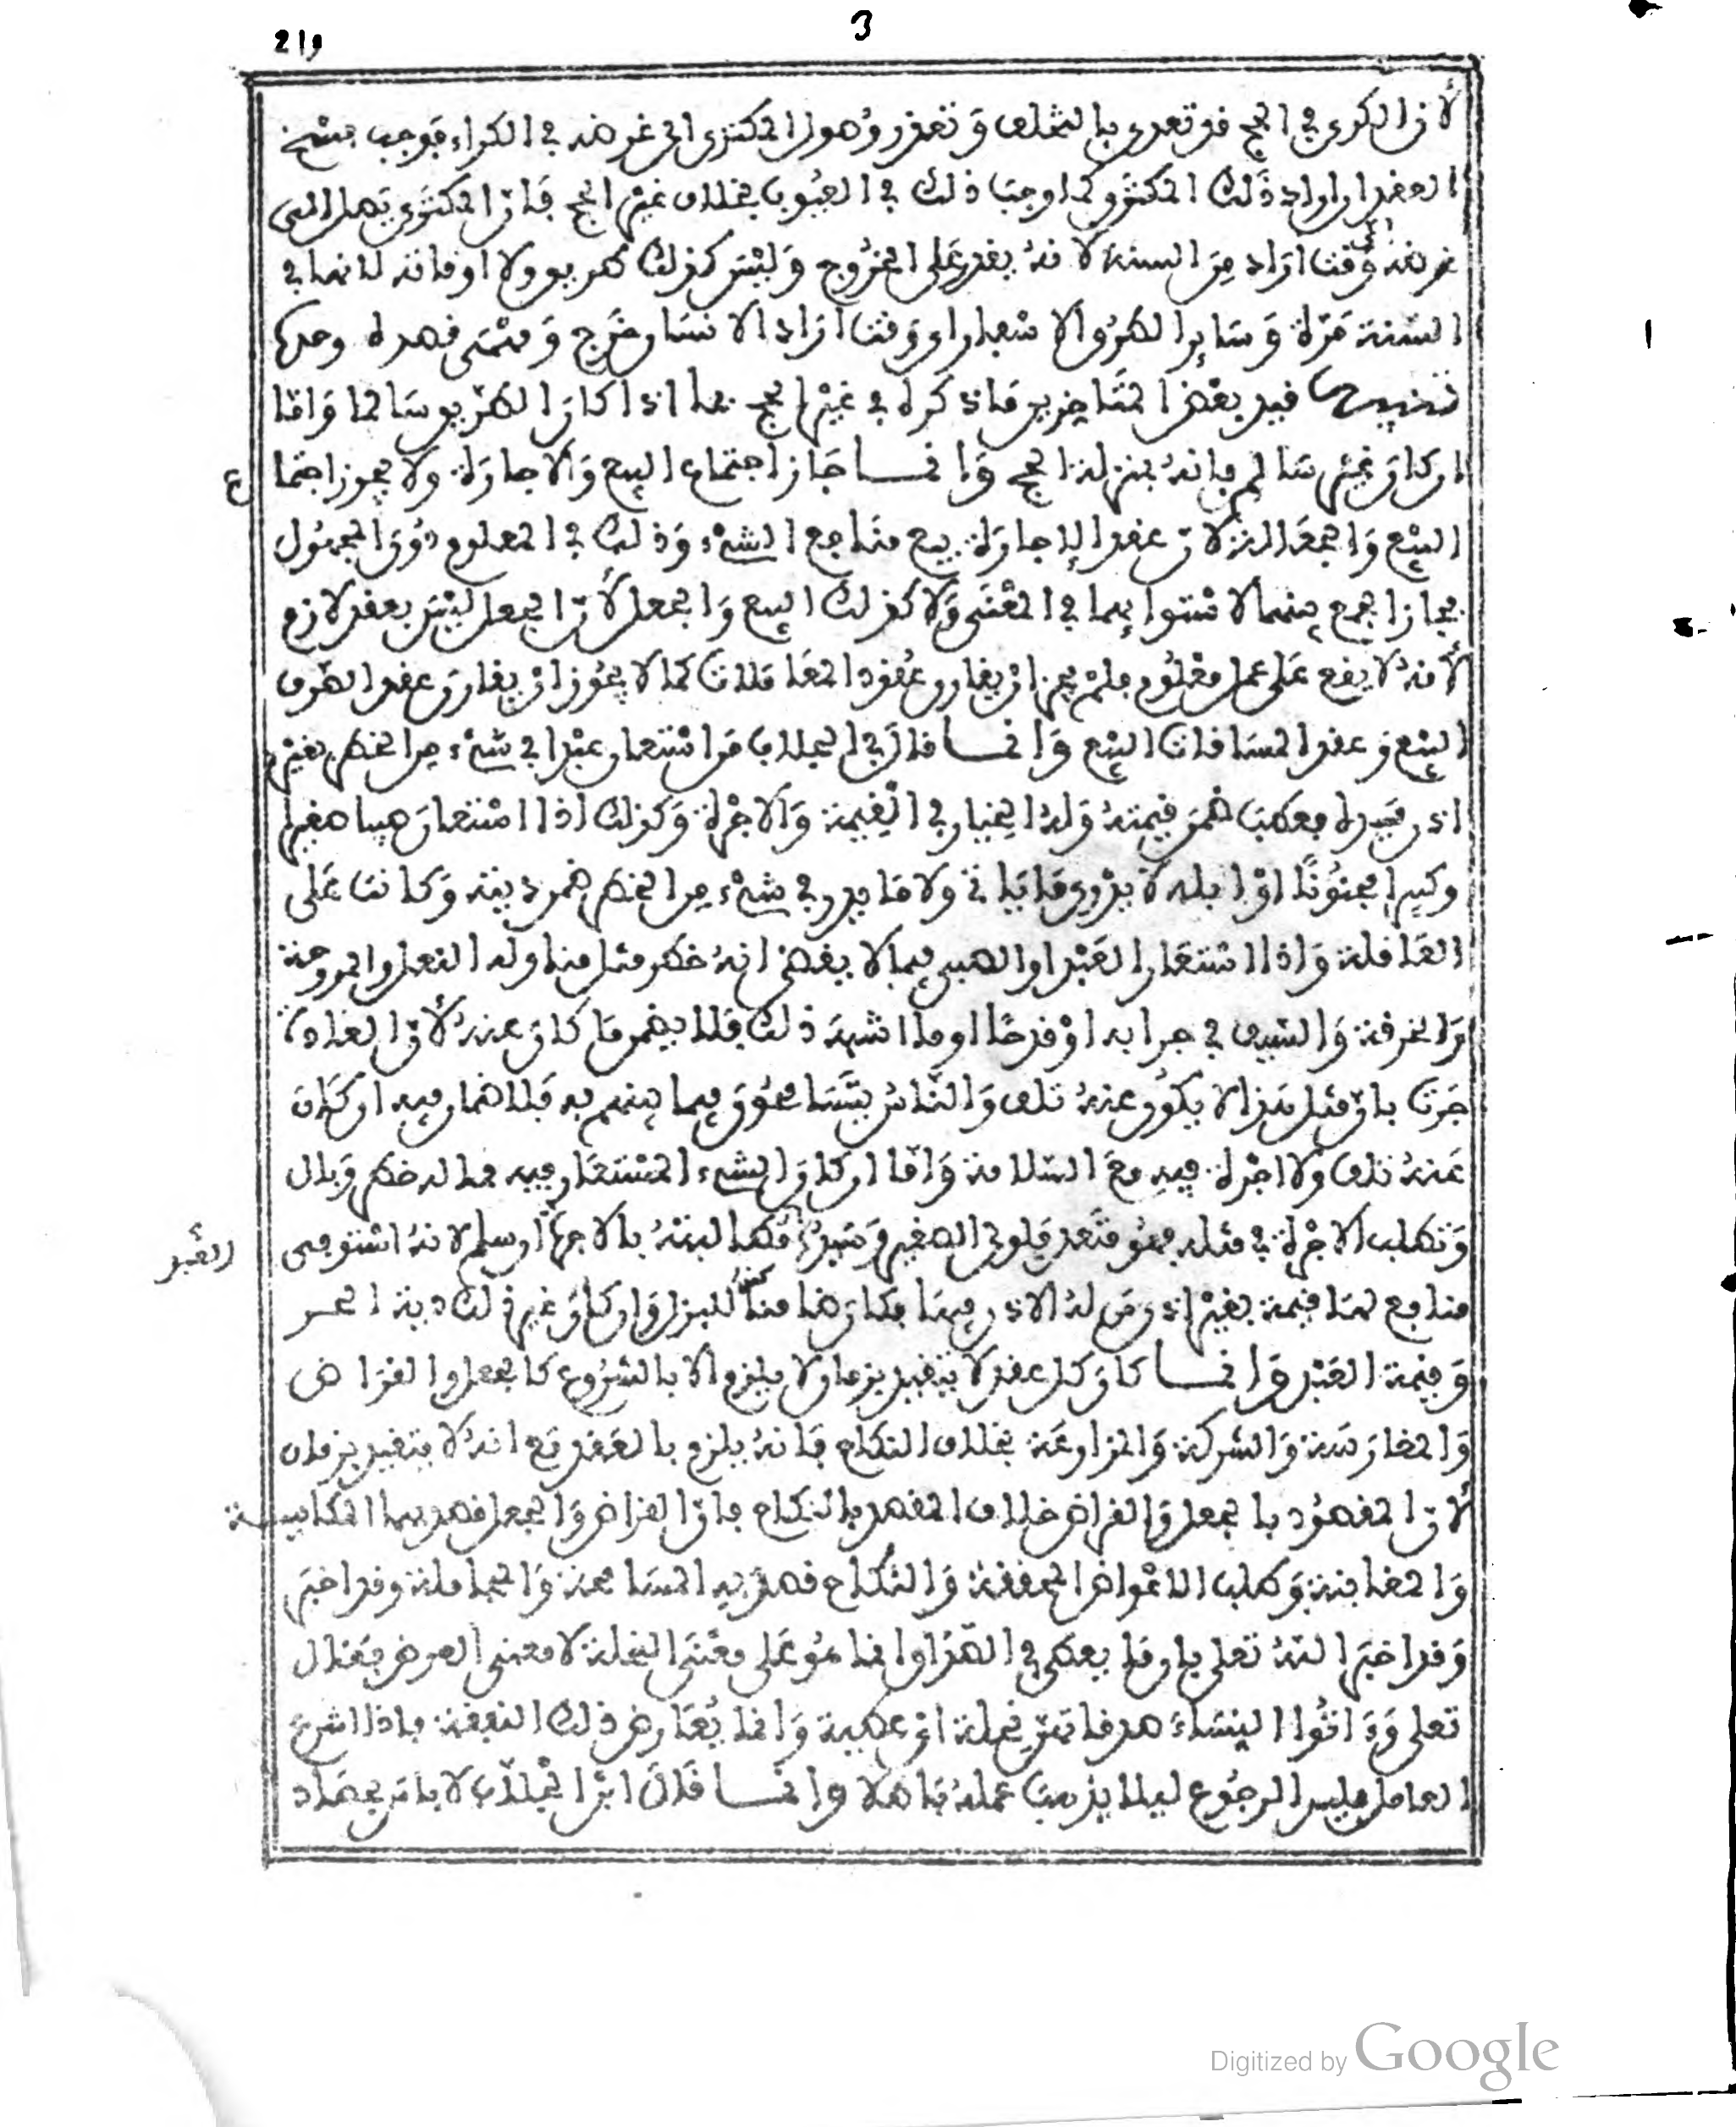 3
219
لأن الكرى في الحج قد تعدى بالتخلف وتعذر وصول المكترى الى غرضه في الكراء فوجب فسخ
العقد ان اراد ذلك المكترى كما وجب ذلك في العيوب بخلاف غيره الحج فان المكترى يصل الى
غرضه أي وقت اراد من السنة لانه يقدر على الخروج وليس كذلك طريق ولا اوقاته لانها في
السنة مرة وسائر الطرق والاسفار اي وقت اراد الانسان خرج ومشى قصده وحده
تنبيه قيد بعض المتأخرين ما ذكره في غير الحج بما اذا كان الطريق سالما واما
ان كان غير سالم فانه بمنزلة الحج وانما جاز اجتماع البيع والاجارة ولا يجوز اجتماع
البيع والجعالة لان عقد الاجارة بيع منافع الشيء وذلك في المعلوم دون المجهول
فجاز الجمع بينهما لاستوائهما في المعنى ولا كذلك البيع والجعل لأن الجعل ليس بعقد لازم
لأنه لا يقع على عمل معلوم فلم يجز ان يقارن عقود المعاملات كما لا يجوز ان يقارن عقد الصرف
البيع وعقد المساقات البيع وانما قال في الجلاب من استعان عبدا في شيء من الخطر بغير
اذن سيده فعطب ضمن قيمته وله الخيار في القيمة والاجرة وكذلك اذا استعان صبيا صغيرا
وكبيرا مجنونا او ابله لا يدري ما ياتي ولا ما يدر في شيء من الخطر ضمن ديته وكانت على
العاقلة واذا استعان العبد او الصبي فيما لا يقضى انه خطر مثل مناولة النعل والمروحة
والخرقة والسيف في جرابه او قدحا او ما اشبه ذلك فلا يضمن ما كان عنده لأن العادة
جرت بان مثل هذا لا يكون عنده تلف والناس يتسامحون فيما بينهم به فلا ضمان فيه ان كان
عنده تلف ولا اجرة فيه مع السلامة واما ان كان الشيء المستعان فيه مما له خطر وبال
وتطلب الاجرة في مثله فهو متعد فلولي الصغير وسيد العبد مطالبته بالاجرة ان سلم لانه استوفى
منافع لها قيمة بغير اذن من له الاذن فيها فكان ضامنا كمتلف البزار وان كان غير ذلك دية الحر
وقيمة العبد وانما كان كل عقد لا يتقيد بزمان ولا يلزم الا بالشروع كالجعل والقراض
والمغارسة والشركة والمزارعة بخلاف النكاح فانه يلزم بالعقد مع انه لا يتقيد بزمان
لأن المقصود بالجعل والقراض خلاف المقصد بالنكاح فان القراض والجعل قصد بهما المكايسة
والمغابنة وطلب الاعواض المحققة والنكاح قصد به المسامحة والمجاملة وقد اخبر
وقد اخبر الله تعلى بان ما يعطى في الصداق انما هو على معنى النحلة لا معنى العوض فقال
تعلى وءاتوا النساء صدقاتهن نحلة اي عطية وانما يعارض ذلك النفقة فاذا شرع
العامل فليس الرجوع ليلا يذهب عمله باطلا وانما قال ابن الجلاب لا باس بحصاد